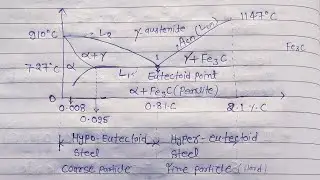 1147°C
910°C
L2
γ austenite
Acm
Fe3C
α+γ
γ+Fe3C
727°C
α
L1
Eutectoid Point
0
α+Fe3C (Pearlite)
0.008
0.025
0.81.C
2.1 %.C
Hypo-Eutectoid
Steel
Hyper-eutectoid
Steel
Coarse particle
Fine particle (Hard)